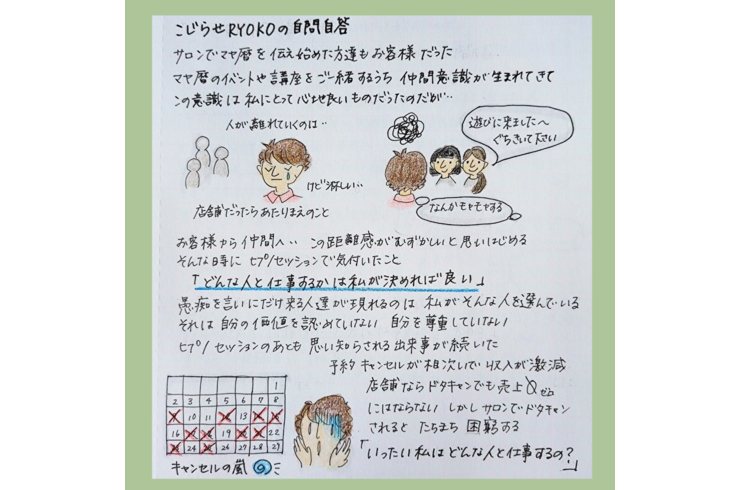 こじらせRYOKOの自問自答
サロンでマヤ暦を伝え始めた方達もお客様だった
マヤ暦のイベントや講座をご一緒するうち 仲間意識が生まれてきて
この意識は私にとって心地良いものだったのだが‥
人が離れていくのは‥
遊びに来ました〜
ぐちきいて下さい
けど淋しい‥
なんかモヤモヤする
店舗だったらあたりまえのこと
お客様から仲間へ‥ この距離感がむずかしいと思いはじめる
そんな時に ヒプノセッションで気付いたこと
「どんな人と仕事するかは私が決めれば良い」
愚痴を言いにだけ来る人達が現れるのは 私がそんな人を選んでいる
それは 自分の価値を認めていない 自分を尊重していない
ヒプノセッションのあとも 思い知らされる出来事が続いた
予約キャンセルが相次いで 収入が激減
店舗ならドタキャンでも売上0ゼロ
にはならない しかしサロンでドタキャン
されると たちまち 困窮する
「いったい私はどんな人と仕事するの?」
1
2 3 4 5 6 7 8
10 11 13
16 22
24 26 27 28 29
キャンセルの嵐